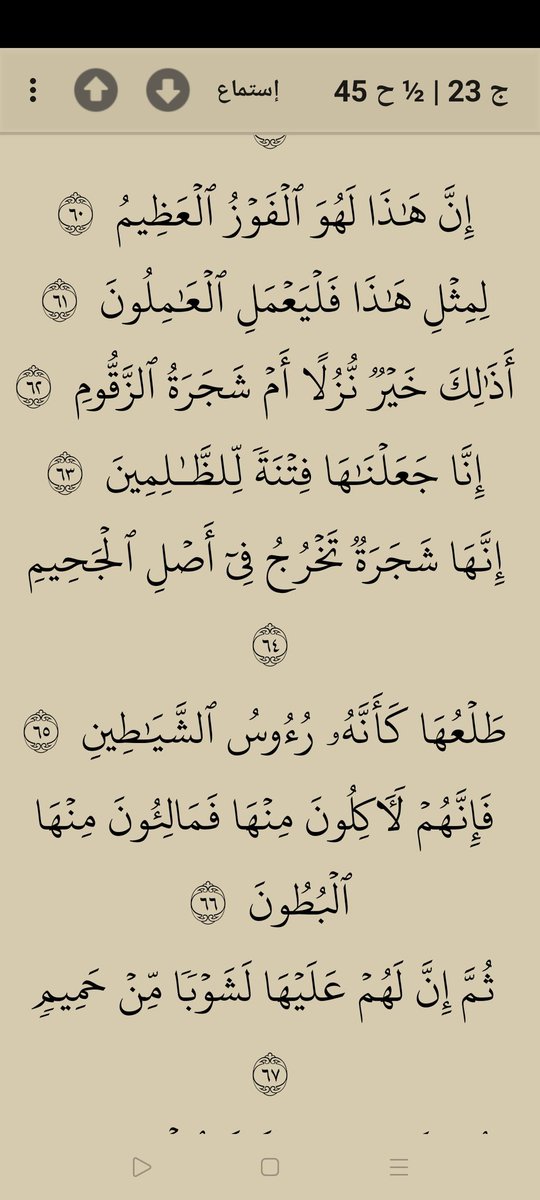 ج 23 | ½ ح 45 إستماع
إِنَّ هَـٰذَا لَهُوَ ٱلْفَوْزُ ٱلْعَظِيمُ ٦٠
لِمِثْلِ هَـٰذَا فَلْيَعْمَلِ ٱلْعَـٰمِلُونَ ٦١
أَذَٰلِكَ خَيْرٌ نُّزُلًا أَمْ شَجَرَةُ ٱلزَّقُّومِ ٦٢
إِنَّا جَعَلْنَـٰهَا فِتْنَةً لِّلظَّـٰلِمِينَ ٦٣
إِنَّهَا شَجَرَةٌ تَخْرُجُ فِىٓ أَصْلِ ٱلْجَحِيمِ
٦٤
طَلْعُهَا كَأَنَّهُۥ رُءُوسُ ٱلشَّيَـٰطِينِ ٦٥
فَإِنَّهُمْ لَـَٔاكِلُونَ مِنْهَا فَمَالِـُٔونَ مِنْهَا
ٱلْبُطُونَ ٦٦
ثُمَّ إِنَّ لَهُمْ عَلَيْهَا لَشَوْبًا مِّنْ حَمِيمٍ
٦٧